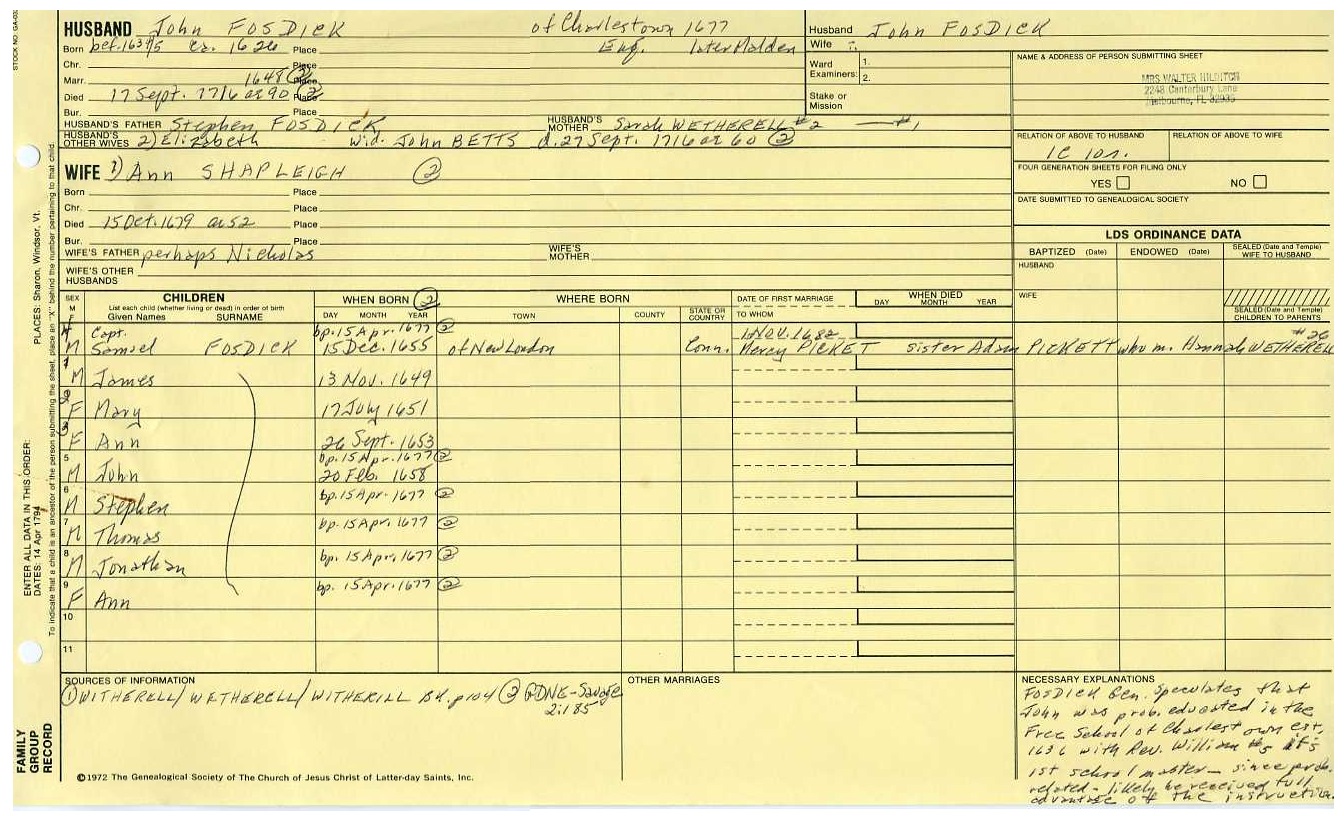 STOCK NO. GA-032
HUSBAND John FOSDICK of Charlestown 1677
Born bef. 1631/5 ca. 1626 Place Eng. later Malden
Chr. Place
Marr. 1648 ② Place
Died 17 Sept. 1716 ae 90 ② Place
Bur. Place
HUSBAND'S FATHER Stephen FOSDICK HUSBAND'S MOTHER Sarah WETHERELL #2 —#1
HUSBAND'S OTHER WIVES 2) Elizabeth wid. John BETTS d. 27 Sept. 1716 ae 60 ②
WIFE 1) Ann SHAPLEIGH ②
Born Place
Chr. Place
Died 15 Oct. 1679 ae 52 Place
Bur. Place
WIFE'S FATHER perhaps Nicholas WIFE'S MOTHER
WIFE'S OTHER HUSBANDS
Husband John FOSDICK
Wife
Ward 1.
Examiners: 2.
Stake or Mission
NAME & ADDRESS OF PERSON SUBMITTING SHEET
MRS WALTER HILDITCH
2248 Canterbury Lane
Melbourne, FL 32935
RELATION OF ABOVE TO HUSBAND RELATION OF ABOVE TO WIFE
1C 10r.
FOUR GENERATION SHEETS FOR FILING ONLY
YES NO
DATE SUBMITTED TO GENEALOGICAL SOCIETY
LDS ORDINANCE DATA
BAPTIZED (Date) ENDOWED (Date) SEALED (Date and Temple) WIFE TO HUSBAND
HUSBAND
WIFE
SEALED (Date and Temple) CHILDREN TO PARENTS
SEX M F
CHILDREN
List each child (whether living or dead) in order of birth
Given Names SURNAME
WHEN BORN ②
DAY MONTH YEAR
WHERE BORN
TOWN COUNTY STATE OR COUNTRY
DATE OF FIRST MARRIAGE
TO WHOM
WHEN DIED
DAY MONTH YEAR
4 Capt. bp. 15 Apr. 1677 ② 1 NOV. 1682 #26
M Samuel FOSDICK 15 Dec. 1655 of New London Conn. Mercy PICKET sister Adam PICKETT who m. Hannah WETHERELL
1 M James 13 Nov. 1649
2 F Mary 17 July 1651
3 F Ann 26 Sept. 1653
5 bp. 15 Apr. 1677 ②
M John 20 Feb. 1658
6 M Stephen bp. 15 Apr. 1677 ②
7 M Thomas bp. 15 Apr. 1677 ②
8 M Jonathan bp. 15 Apr. 1677 ②
9 F Ann bp. 15 Apr. 1677 ②
10
11
SOURCES OF INFORMATION
① WITHERELL/WETHERELL/WITHERILL BK. p104 ② GDNE-Savage
2:185
OTHER MARRIAGES
NECESSARY EXPLANATIONS
FOSDICK Gen. Speculates that
John was prob. educated in the
Free School of Charlestown est.
1636 with Rev. William #5 it's
1st school master - since prob.
related - likely be received full
advantage of the instruction.
©1972 The Genealogical Society of The Church of Jesus Christ of Latter-day Saints, Inc.
FAMILY GROUP RECORD
ENTER ALL DATA IN THIS ORDER:
DATES: 14 Apr 1794
PLACES: Sharon, Windsor, Vt.
To indicate that a child is an ancestor of the person submitting the sheet, place an "X" behind the number pertaining to that child.